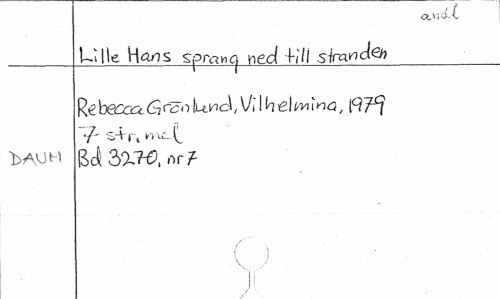 andl
Lille Hans sprang ned till stranden
Rebecca Grönlund, Vilhelmina, 1979
7 str, mel
DAUM Bd 3270, nr 7